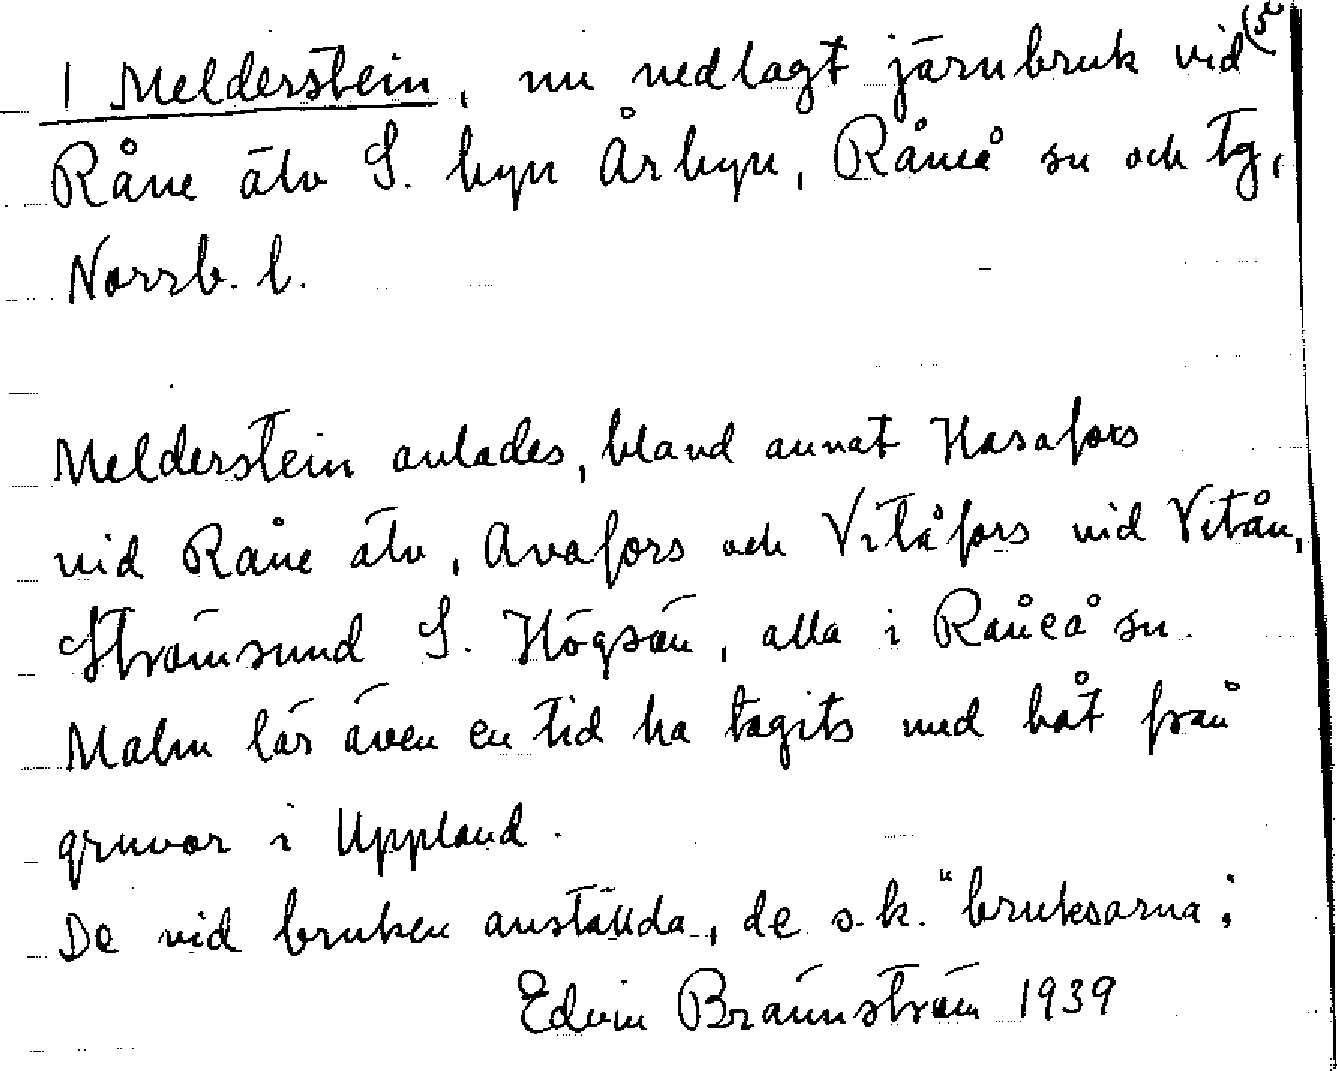 (5
1 Melderstein, nu nedlagt järnbruk vid
Råne älv S. byn Årbyn, Råneå sn och tg,
Norrb. l.
Melderstein anlades, bland annat Hasafors
vid Råne älv, Avafors och Vitåfors vid Vitån,
Strömsund S. Högsön, alla i Råneå sn.
Malm lär även en tid ha tagits med båt från
gruvor i Uppland.
De vid bruken anställda, de s.k. "bruksarna;
Edvin Brännström 1939